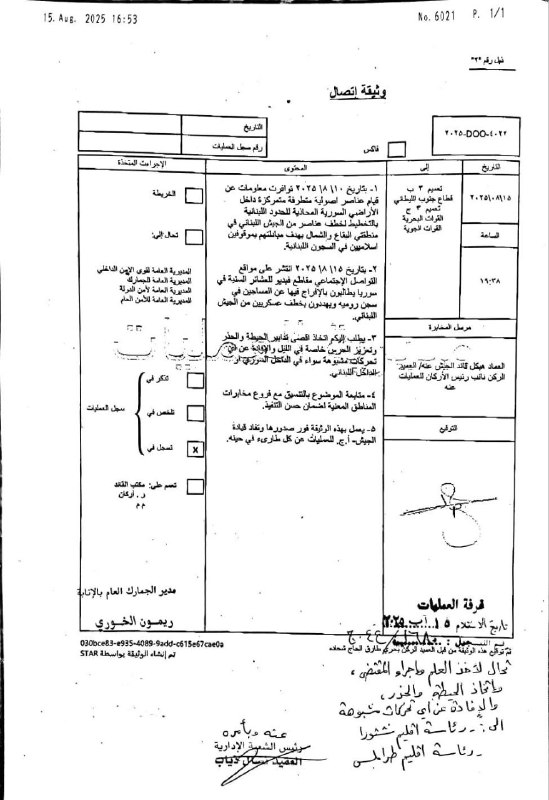 15. Aug. 2025 16:53
No. 6021 P. 1/1
وثيقة إتصال
٢٠٢٥-DOO-٤٠٢٢
فاكس
التاريخ
رقم سجل العمليات
التاريخ
إلى
المحتوى
الإجراءت المتخذة
٢٠٢٥/٠٨/١٥
الساعة
١٩:٣٨
مرسل المخابرة
العماد هيكل قائد الجيش عنه/ العميد
الركن نائب رئيس الأركان للعمليات
عنه
التوقيع
تعميم ٣ ب
قطاع جنوب الليطاني
تعميم ٣ ج
القوات البحرية
القوات الجوية
١- بتاريخ ١٠\ ٨\ ٢٠٢٥ توافرت معلومات عن
قيام عناصر اصولية متطرفة متمركزة داخل
الأراضي السورية المحاذية للحدود اللبنانية
بالتخطيط لخطف عناصر من الجيش اللبناني في
منطقتي البقاع والشمال بهدف مبادلتهم بموقوفين
اسلاميين في السجون اللبنانية.
٢- بتاريخ ١٥\ ٨\ ٢٠٢٥ انتشر على مواقع
التواصل الإجتماعي مقاطع فيديو للعشائر السنية في
سوريا يطالبون بالإفراج فيها عن المساجين في
سجن روميه ويهددون بخطف عسكريين من الجيش
اللبناني.
٣- يطلب إليكم اتخاذ اقصى تدابير الحيطة والحذر
وتعزيز الحرس خاصة في الليل والإفادة عن اي
تحركات مشبوهة سواء في الداخل السوري او
الداخل اللبناني.
٤- متابعة الموضوع بالتنسيق مع فروع مخابرات
المناطق المعنية لضمان حسن التنفيذ.
٥- يعمل بهذه الوثيقة فور صدورها وتفاد قيادة
الجيش- أ.ج. للعمليات عن كل طارىء في حينه.
الخريطة
تحال إلى:
المديرية العامة لقوى الامن الداخلي
المديرية العامة للجمارك
المديرية العامة لأمن الدولة
المديرية العامة للأمن العام
تذكر في
تلخص في
سجل العمليات
X
تسجل في
تعمم على: مكتب القائد
ر. أركان
م م
مدير الجمارك العام بالإنابة
ريمون الخوري
غرفة العمليات
تاريخ الاستلام ١٥ آب ٢٠٢٥
030bce83-e935-4089-9add-c615e67cae0a
تم توقيع هذه الوثيقة من قبل العميد الركن بحري طارق الحاج شحاده
تم إنشاء الوثيقة بواسطة STAR
تحال لأخذ العلم وإجراء المقتضى،
واتخاذ الحيطة والحذر،
والإفادة عن أي تحركات مشبوهة
إلى: - رئاسة اقليم شتورا
- رئاسة اقليم طرابلس
عنه وبأمره
رئيس الشعبة الإدارية